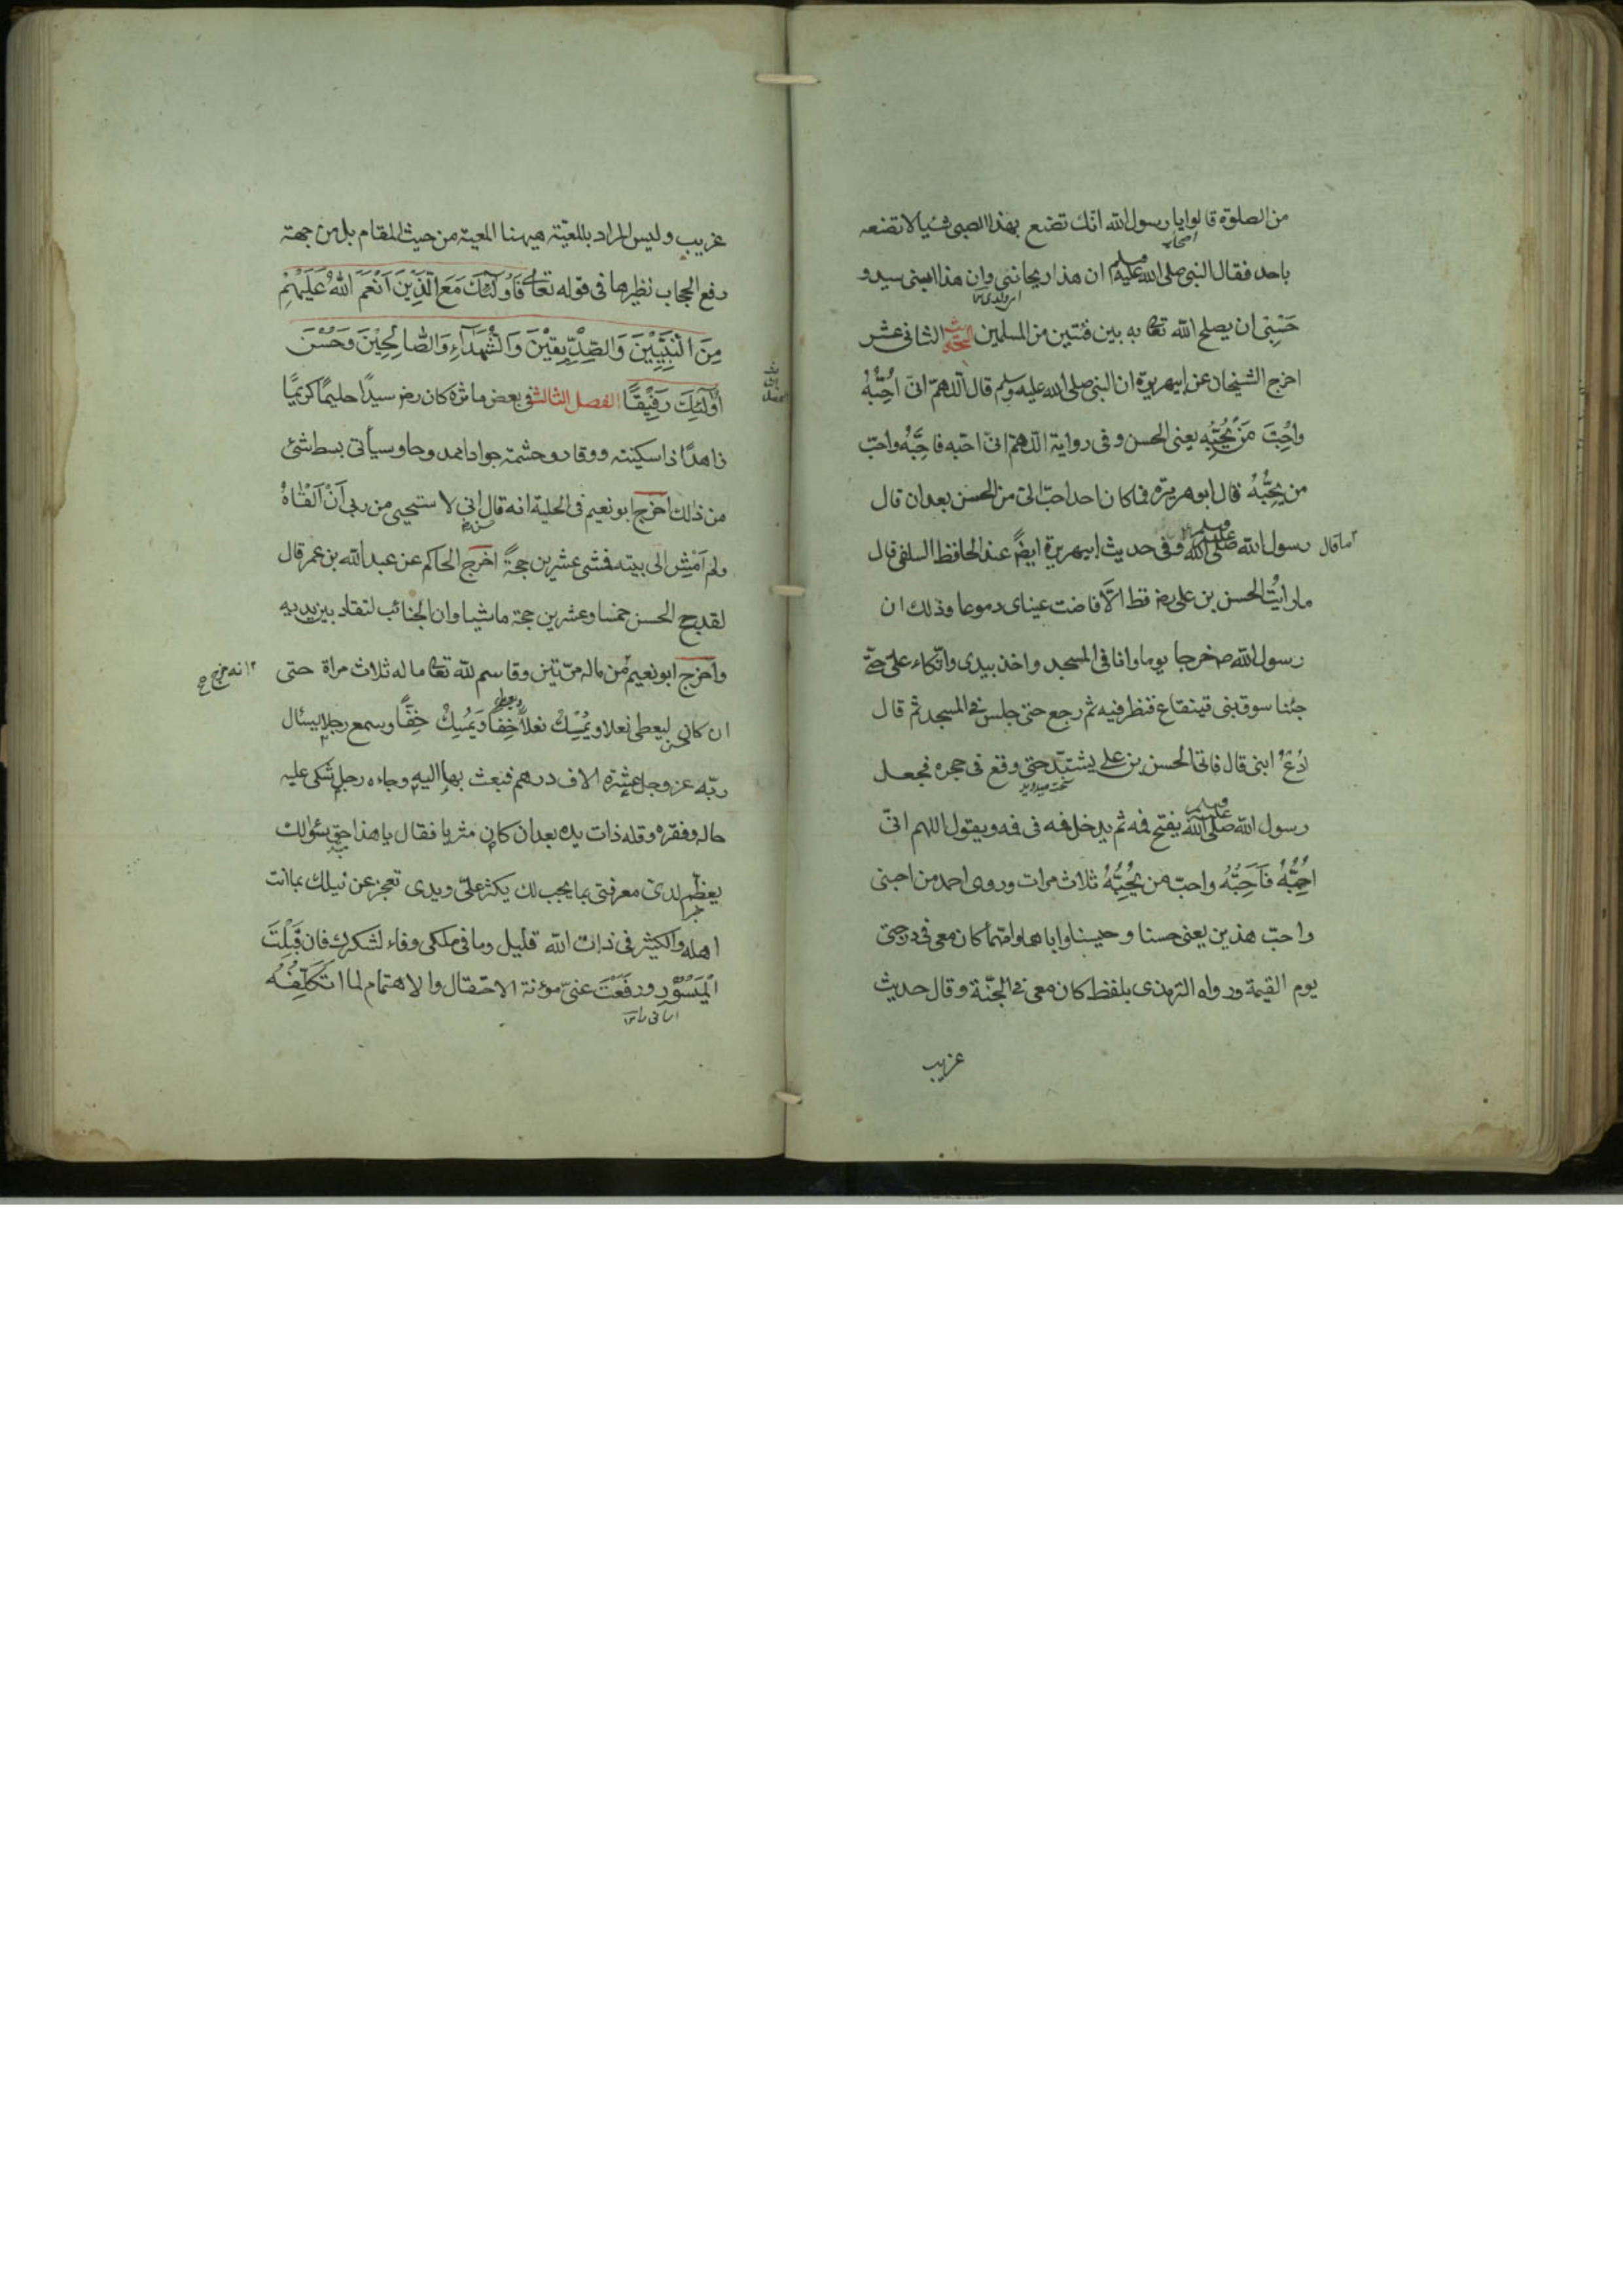 من الصلوة قالوا يا رسول الله انّك تضع بهذا الصبى شيا لا تضعه
باحد فقال النبى صلى الله عليه وسلم ان هذا ريحانتى وان هذا ابنى سيد و
حَسْبِى ان يصلح الله تعا به بين فئتين من المسلمين الحديث الثانى عشر
اخرج الشيخان عن ابيهريرة ان النبى صلى الله عليه وسلم قال اللّهمّ انى اُحِبُّهُ
واُحِبَّ مَنْ يُحِبُّه يعنى الحسن وفى رواية اللّهمّ انى احبّه فاحِبَّهُ واحبّ
من يُحِبُّهُ قال ابو هريرة فما كان احد احبّ الىّ من الحسن بعد ان قال
رسول الله صلى الله عليه وسلم وفى حديث ابيهريرة ايضً عند الحافظ السلفى قال
ما قال
ما رايتُ الحسن بن على رض قط الّا فاضت عيناى دموعا وذلك ان
رسول الله ص خرجا يوما وانا فى المسجد واخذ بيدى واتّكاء علىّ حتّى
جئنا سوق بنى قينقاع فنظر فيه ثم رجع حتى جلس فى المسجد ثم قال
اُدْعُ ابنى قال فاتى الحسن بن على يشتدّ حتى وقع فى حجره فجعل
رسول الله صلى الله عليه وسلم يفتح فمه ثم يدخل فمه فى فمه ويقول اللهم انّى
اُحِبُّهُ فَاَحِبَّهُ واحبّ من يُحِبُّهُ ثلاث مرات وروى احمد من احبنى
واحبّ هذين يعنى حسنا وحسينا واباهما وامّهما كان معى فى درجتى
يوم القيمة ورواه الترمذى بلفظ كان معى فى الجنّة وقال حديث
غريب
غريب وليس المراد بالمعيّة هيهنا المعية من حيث المقام بل من جهة
رفع الحجاب نظيرها فى قوله تعالى فَاُولٰئِكَ مَعَ الَّذِيْنَ اَنْعَمَ اللهُ عَلَيْهِمْ
مِنَ النَّبِيِّيْنَ وَالصِّدِّيْقِيْنَ وَالشُّهَدَآءِ وَالصَّالِحِيْنَ وَحَسُنَ
اُولٰئِكَ رَفِيْقًا الفصل الثالث فى بعض ماثره كان رض سيدًا حليمًا كريمًا
زاهدًا ذا سكينة ووقار وحشمة جوادا ممدوحا وسيأتى بسط شئ
من ذلك اخرج ابو نعيم فى الحلية انه قال انى لا ستحيى من ربى اَنْ اَلْقَاهُ
ولم اَمْشِ الى بيته فمشى عشرين حجةً اخرج الحاكم عن عبد الله بن عمر قال
لقد حج الحسن خمسا وعشرين حجة ماشيا وان الجنائب لتقاد بين يديه
واخرج ابو نعيم من ماله مرّتين وقاسم لله تعا ماله ثلاث مراة حتى
انه خرج
ان كان ليعطى نعلا ويُمْسِكْ نعلًا ويعطى خِفًّا وَيُمْسِكْ خِفًّا وسمع رجلا يسئال
ربّه عز وجل عشرة الاف درهم فبعث بها اليه وجاءه رجل شكى عليه
حاله وفقره وقلة ذات يده بعد ان كان مثريا فقال يا هذا حق سئوالك
يعظم لدى معرفتى بما يجب لك يكثر علىّ ويدى تعجز عن نيلك بما انت
اهله والكثير فى ذات الله قليل وما فى ملكى وفاء لشكرك فان قَبِلْتَ
الْمَيْسُوْر ورفَعْتَ عنىّ مؤنة الاحتفال والاهتمام لما اتَكَلَّفُهُ